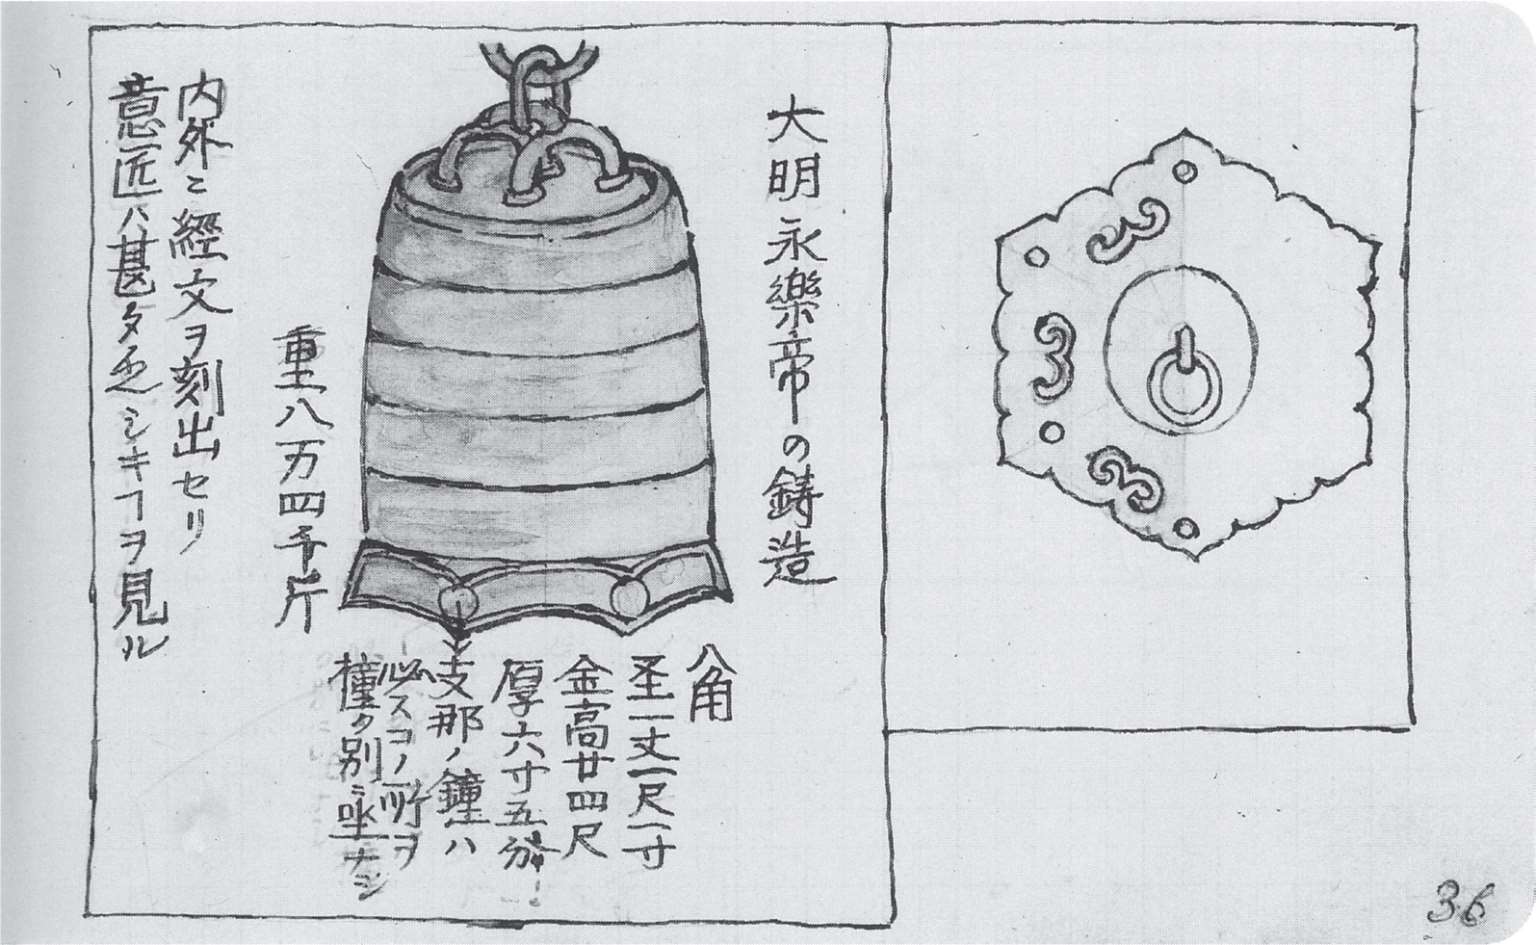 大明永樂帝の鋳造
八角
圣一丈一尺一寸
金高廿四尺
厚六寸五分
支那ノ鐘ハ
必スコノ所ヲ
橦ク別ニ坐ナシ
重八万四千斤
内外ニ經文ヲ刻出セリ
意匠ハ甚タ乏シキヿヲ見ル
36